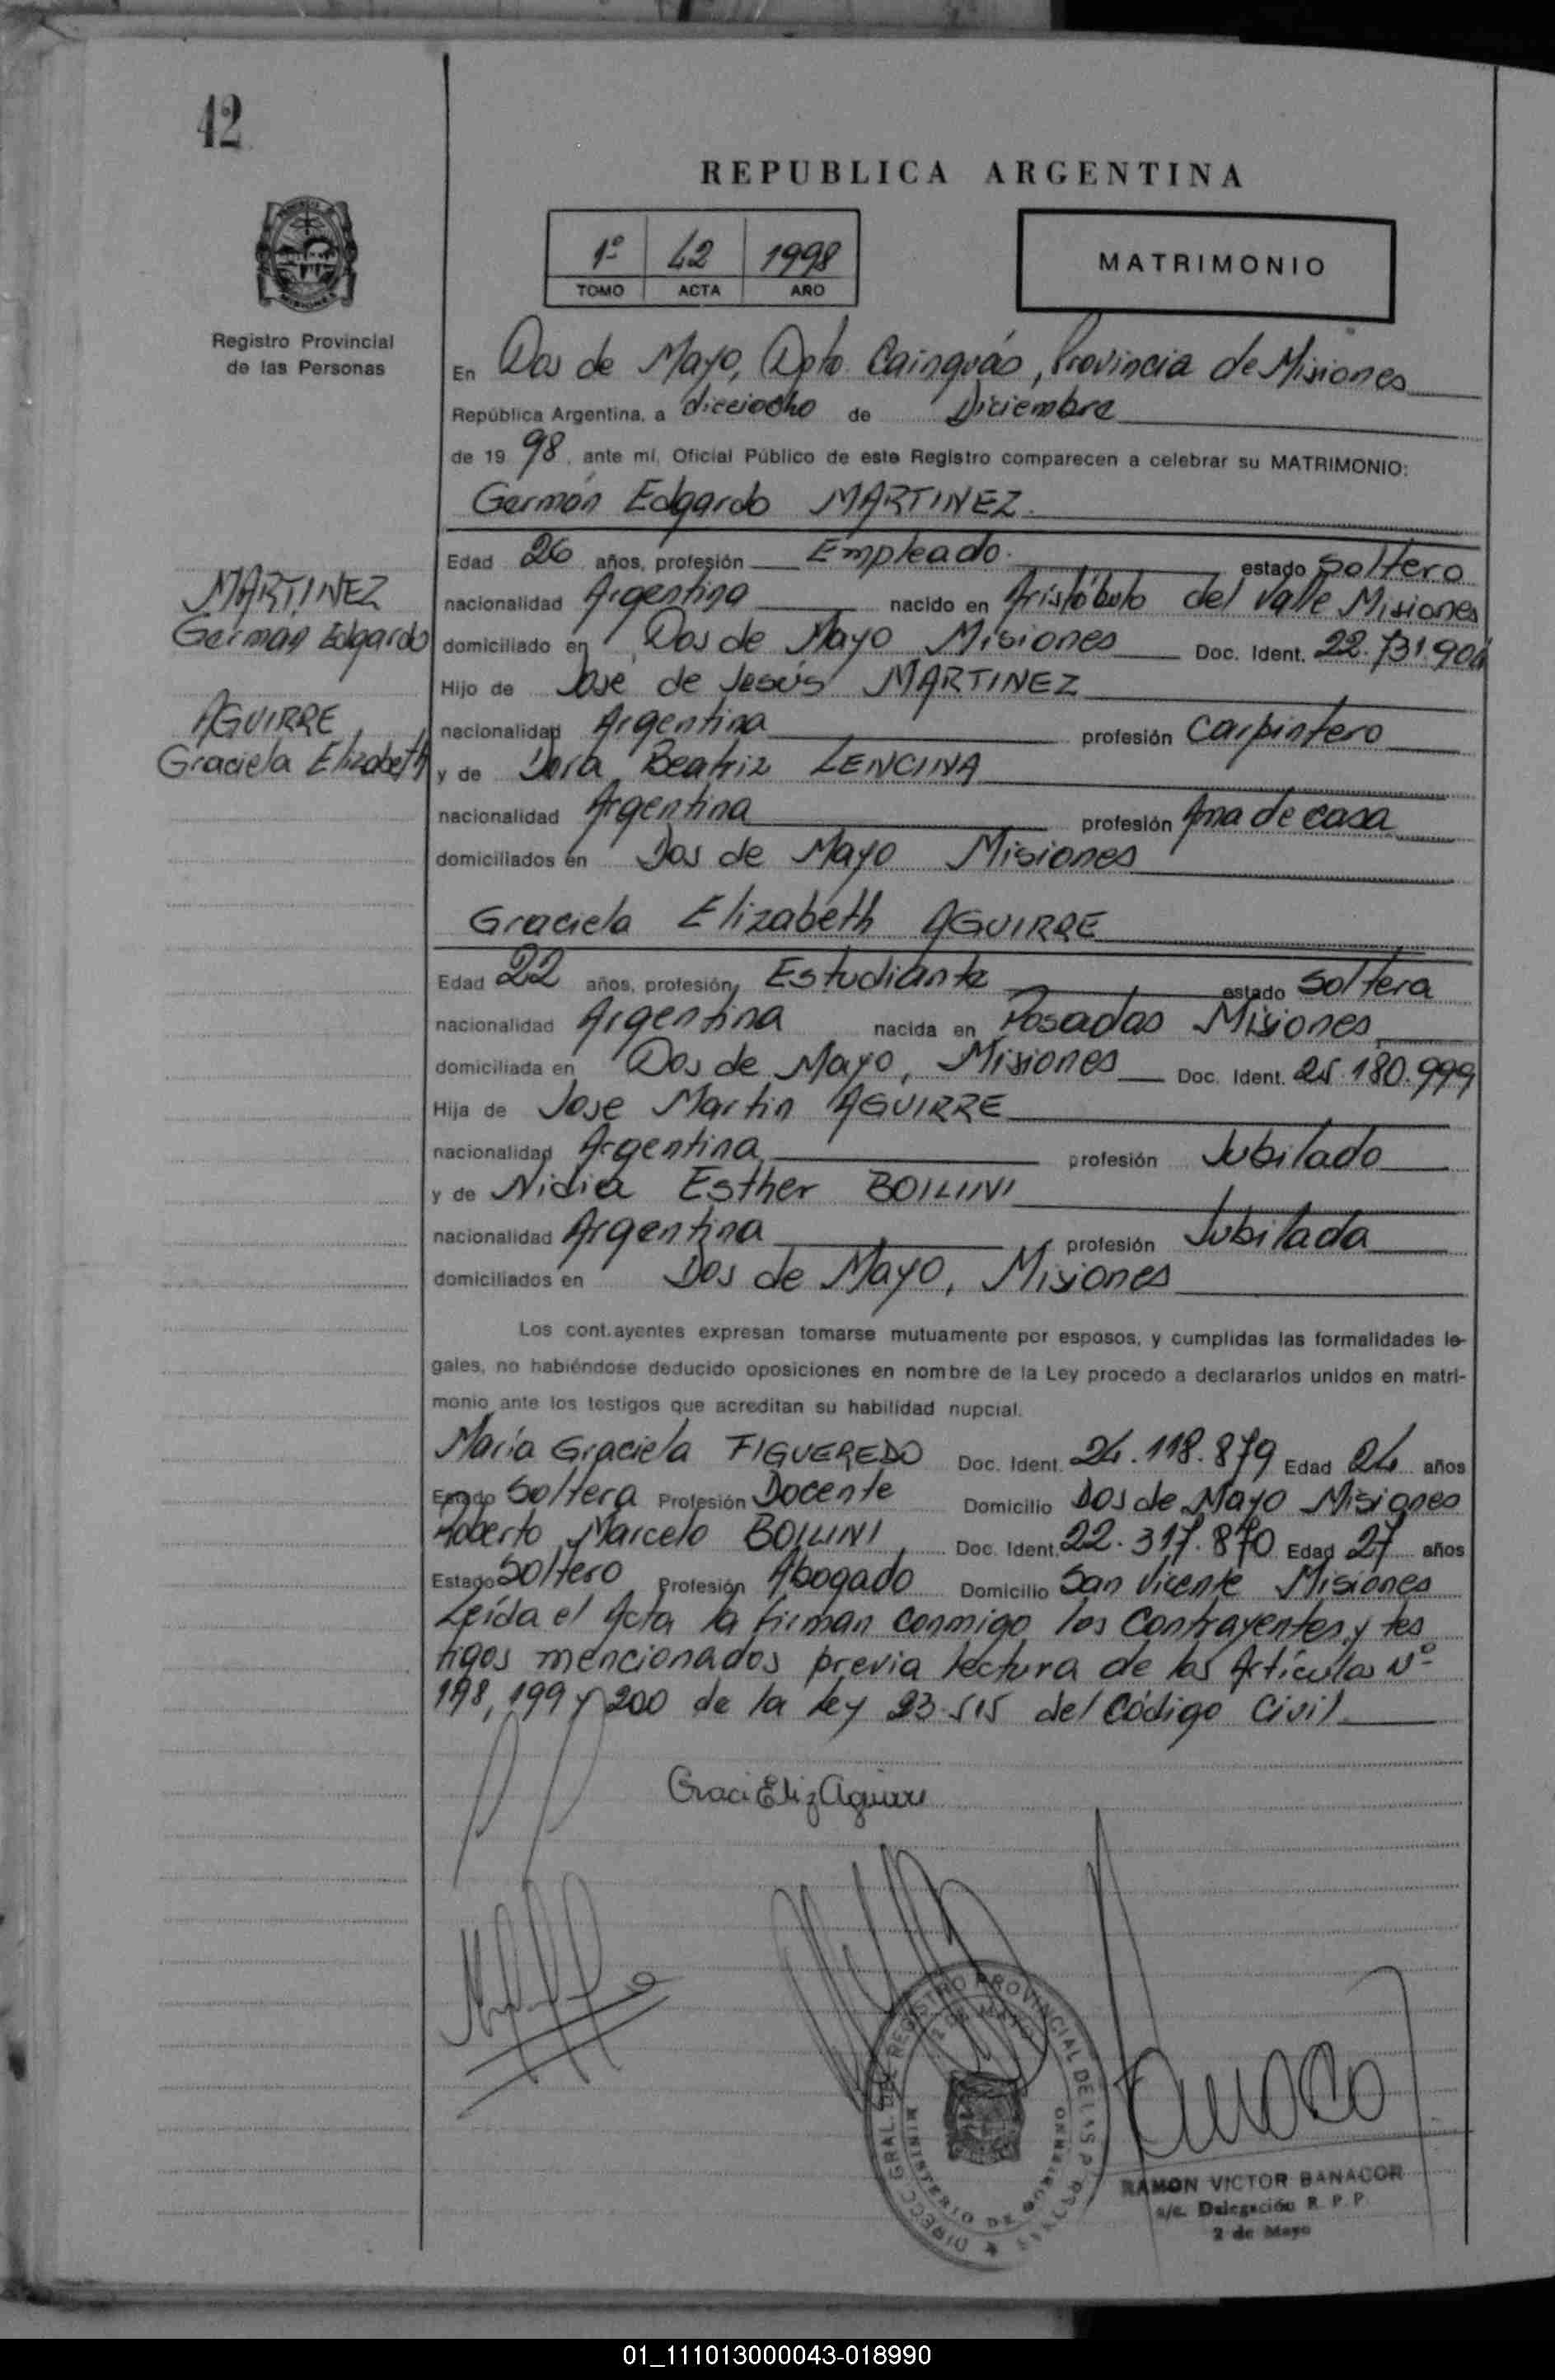 42
REPUBLICA ARGENTINA
1º 42 1998
TOMO ACTA AÑO
MATRIMONIO
Registro Provincial
de las Personas
En Dos de Mayo, Dpto. Cainguás, Provincia de Misiones
República Argentina, a dieciocho de Diciembre
de 1998, ante mí, Oficial Público de este Registro comparecen a celebrar su MATRIMONIO:
Germán Edgardo MARTINEZ.
Edad 26 años, profesión Empleado. estado Soltero
MARTINEZ
nacionalidad Argentina nacido en Aristóbulo del Valle Misiones
Germán Edgardo
domiciliado en Dos de Mayo Misiones Doc. Ident. 22.731.904
Hijo de José de Jesús MARTINEZ
AGUIRRE
nacionalidad Argentina profesión Carpintero
Graciela Elizabeth
y de Dora Beatriz LENCINA
nacionalidad Argentina profesión Ama de casa
domiciliados en Dos de Mayo Misiones
Graciela Elizabeth AGUIRRE
Edad 22 años, profesión, Estudiante estado Soltera
nacionalidad Argentina nacida en Posadas Misiones
domiciliada en Dos de Mayo, Misiones Doc. Ident. 25.180.999
Hija de Jose Martin AGUIRRE
nacionalidad Argentina profesión Jubilado
y de Nidia Esther BOLLINI
nacionalidad Argentina profesión Jubilada
domiciliados en Dos de Mayo, Misiones
Los cont.ayentes expresan tomarse mutuamente por esposos, y cumplidas las formalidades le-
gales, no habiéndose deducido oposiciones en nombre de la Ley procedo a declararlos unidos en matri-
monio ante los testigos que acreditan su habilidad nupcial.
María Graciela FIGUEREDO Doc. Ident. 24.118.879 Edad 24 años
Estado Soltera Profesión Docente Domicilio Dos de Mayo Misiones
Roberto Marcelo BOLLINI Doc. Ident. 22.317.870 Edad 27 años
Estado Soltero Profesión Abogado Domicilio San Vicente Misiones
Leída el Acta la firman conmigo los Contrayentes y tes
tigos mencionados previa lectura de los Artículos Nº
198, 199 y 200 de la Ley 23.515 del Código Civil
Graci Eliz Aguirre
DIRECC. GRAL. DEL REGISTRO PROVINCIAL DE LAS PERSONAS
2 DE MAYO
MINISTERIO DE GOBIERNO
RAMON VICTOR BANACOR
a/c. Delegación R. P. P.
2 de Mayo
01_111013000043-018990